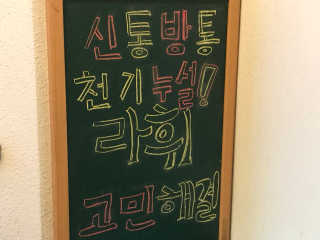 신통방통
천기누설!
라훼
고민해결